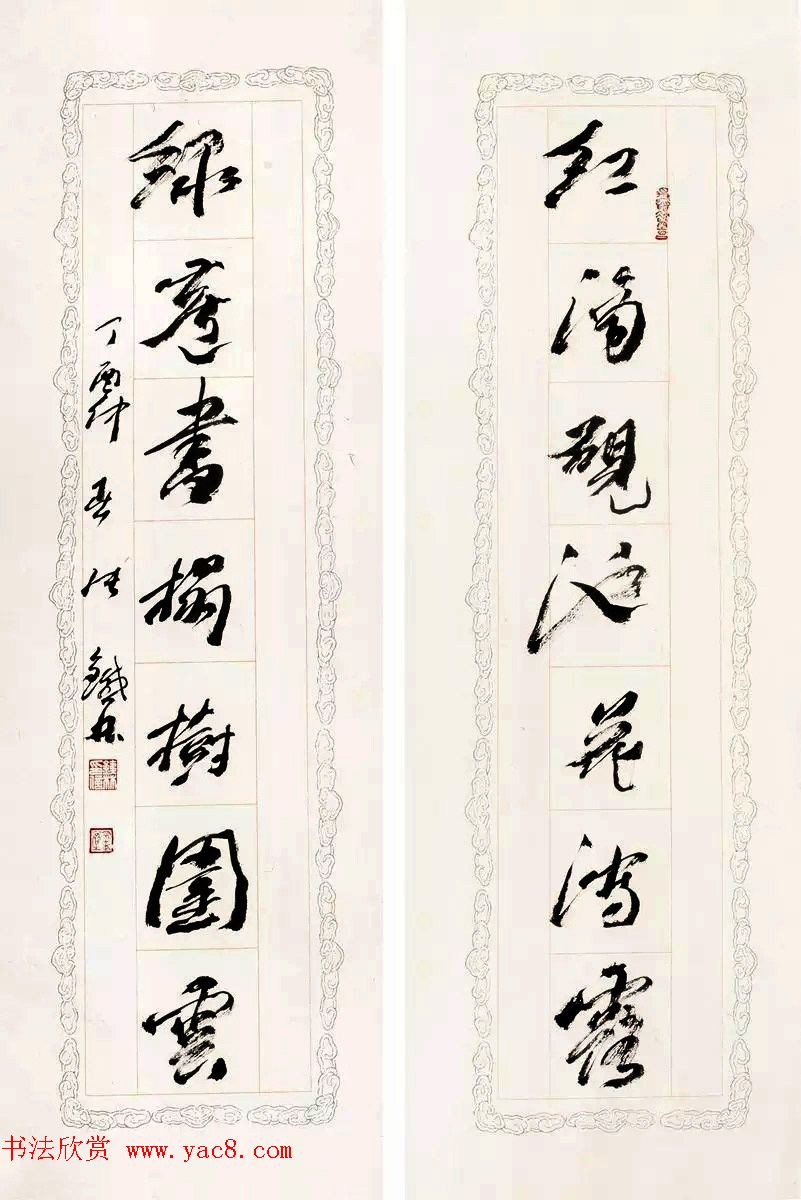 紅滴硯池花瀉露
綠書榻樹圍雲
丁酉仲春張鐵林
书法欣赏 www.yac8.com